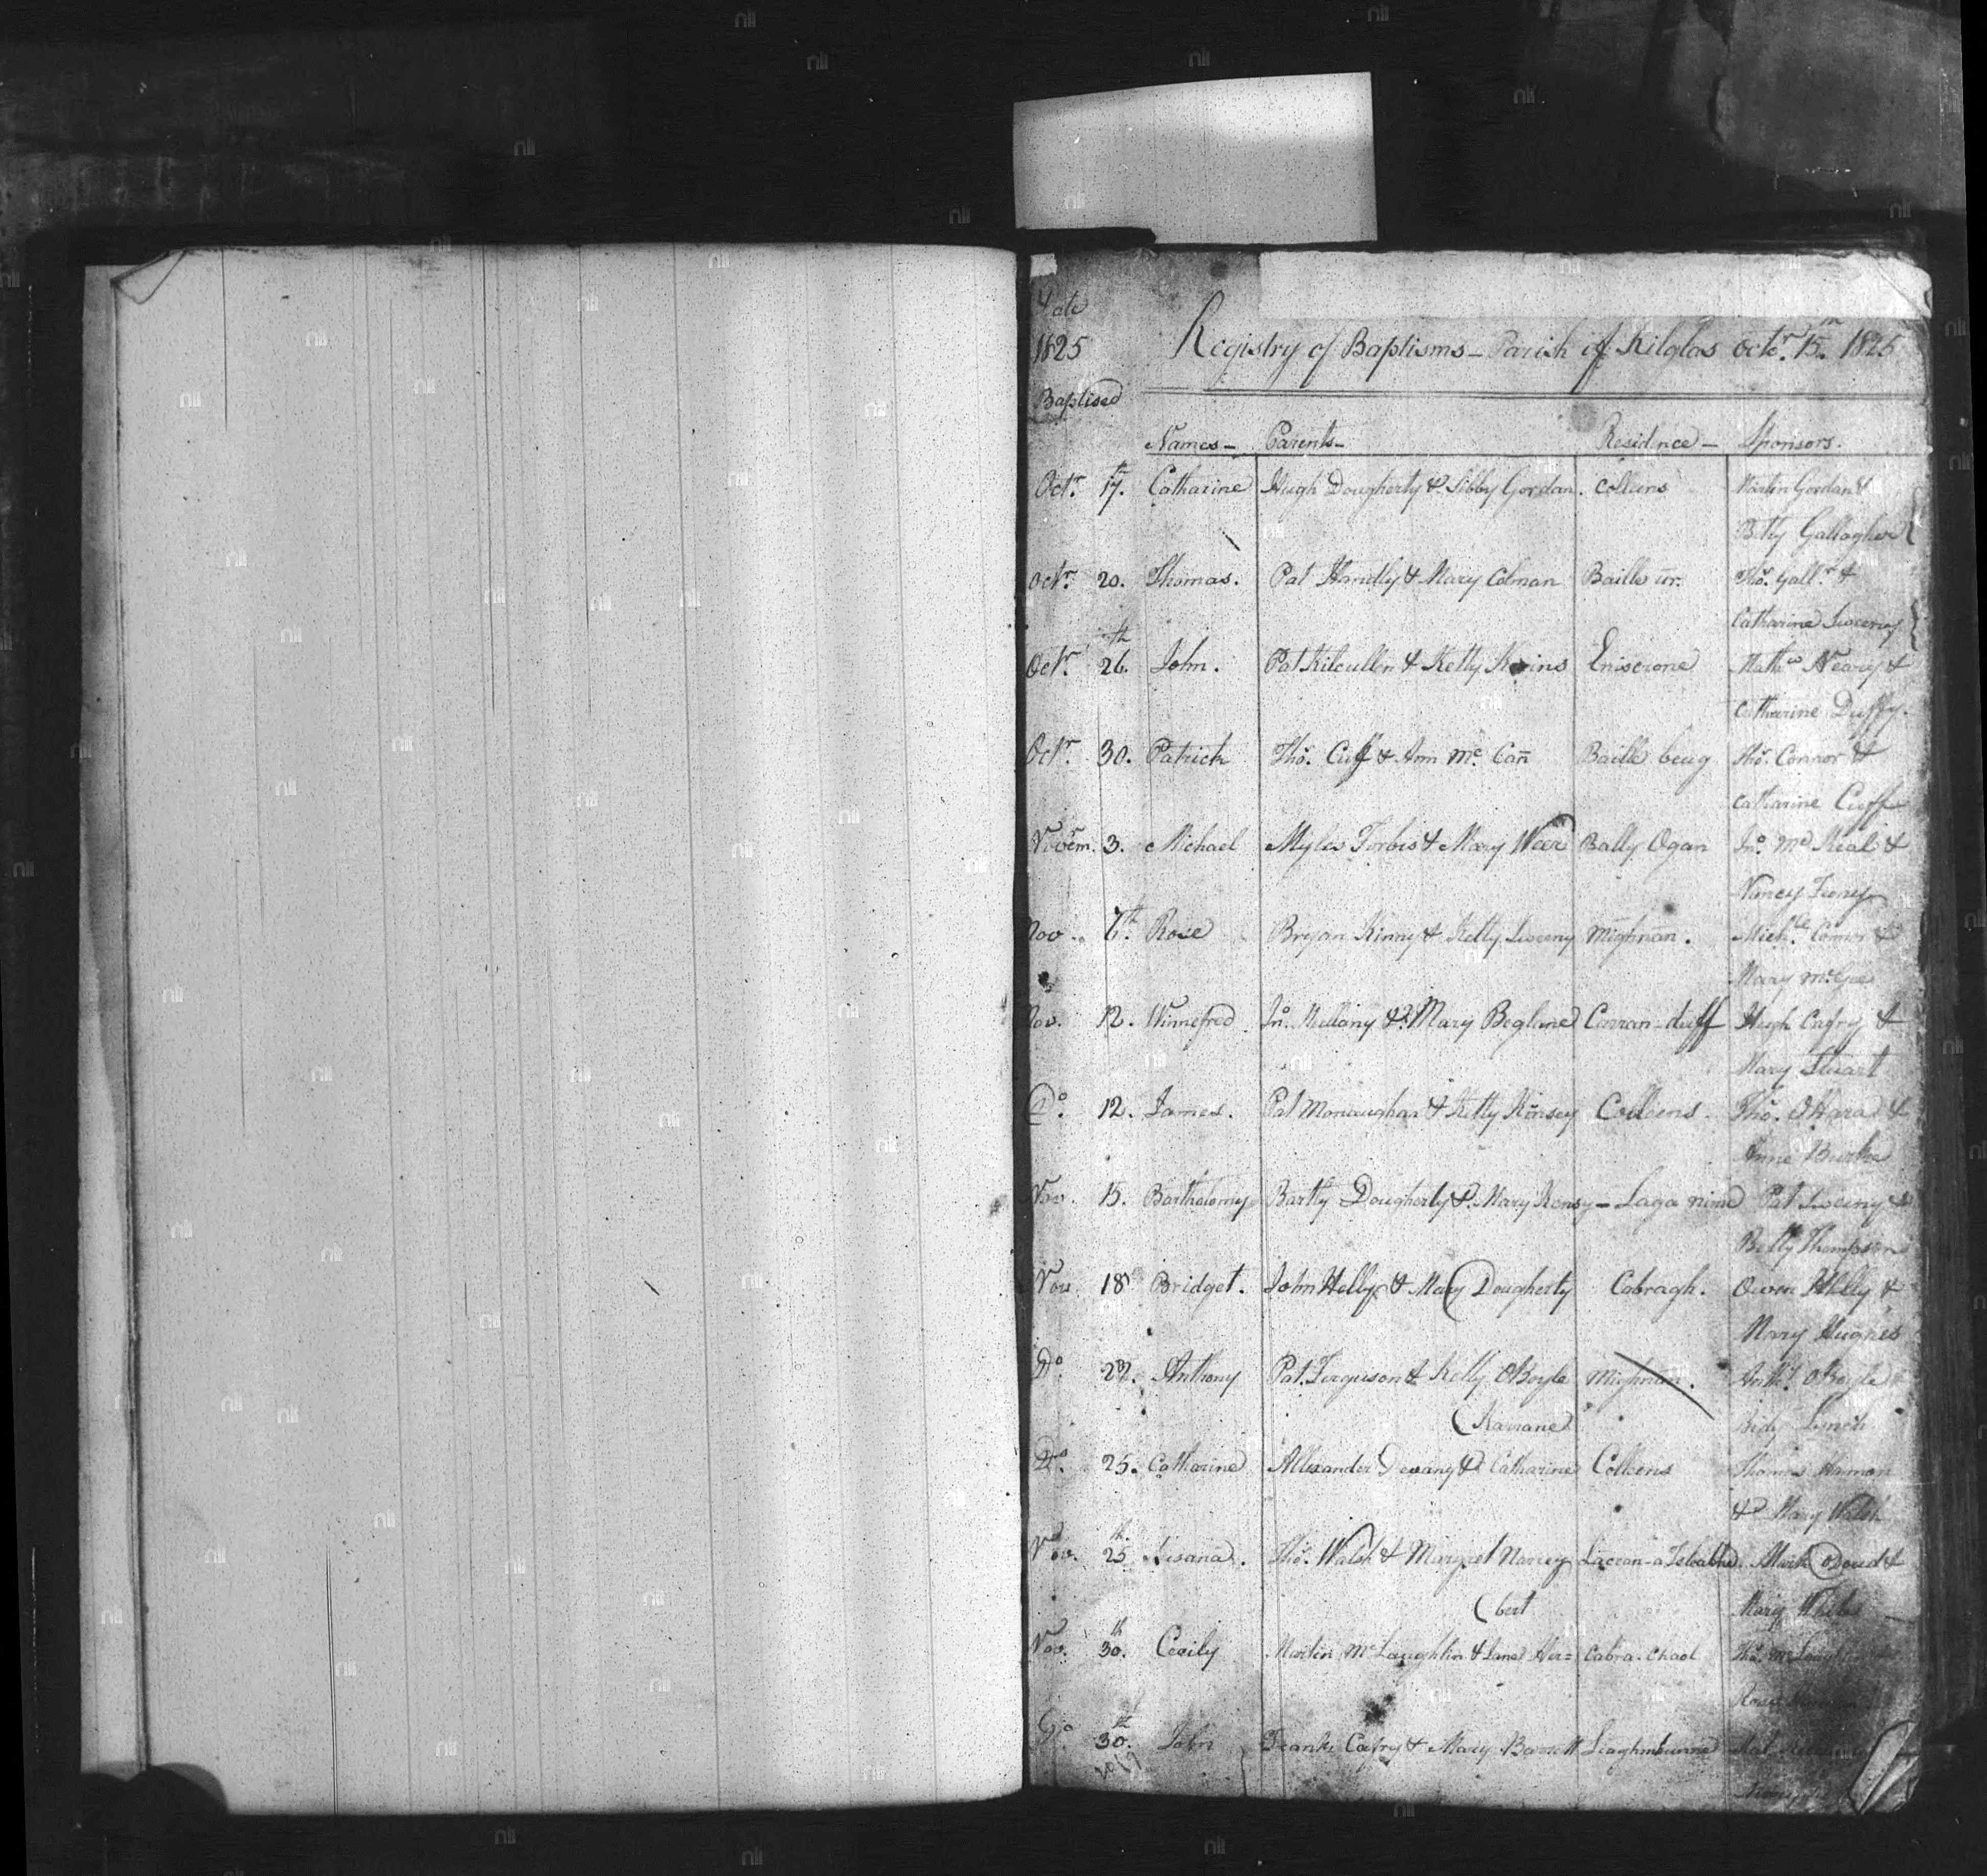 Date
1825
Registry of Baptisms - Parish of Kilglas Octr. 15th 1825
Baptised
Names - Parents - Residence - Sponsors.
Octr. 17th. Catharine Hugh Dougherty & Sibby Gordan. Colleens Martin Gordan &
Betty Gallagher
Octr. 20. Thomas. Pat Handly & Mary Colman Baille ur. Thos. Gallr. &
Catharine Sweeny
Octr. 26th. John. Pat Kilcullen & Kelly Eniscrone Mathw Neary &
Catharine Duffy.
Octr. 30. Patrick Thos. Cuff & Ann Mc. Can Baille beug Thos. Connor &
Catharine Cuff
Novem. 3. Michael Myles Forbis & Mary Weer Bally Ogan Jno. Mc Neal &
Nancy
Nov. Rose Bryan Kinny & Kelly Sweeny Mighnan. Michl. Connor &
Mary McGee
Nov. 12. Winnefred Jno. & Mary Beglane Corran-duff Hugh Cafry &
Mary Stuart
Do. 12. James. Pat Monaughan & Kitty Kinsey Colleens. Thos. OHara &
Anne Burke
Nov. 15. Bartholomy Bartly Dougherty & Mary Kensy - Laga nine Pat Sweeny &
Betty Thompson
Nov. 18 Bridget. John Helly & Mary Dougherty Cabragh. Owen Helly &
Mary Hughes
Do. Anthony Pat. Ferguson & Kelly OBoyle Mighnan. Anthy. OBoyle
Bidy Lynch
(Karrane)
Do. 25. Catharine Allexander Devany & Catharine Colleens Thomas Harman
& Mary Walsh
Nov. 25th. Susana. Thos. Walsh & Margret Lacean-a Mark ODoud &
Mary
(bert
Nov. 30th. Cecily Martin McLaughlin & Jane Her= Cabra. Chaol Thos. McLaughlin
Do. 30th. John Frank Cafry & Mary Barrett